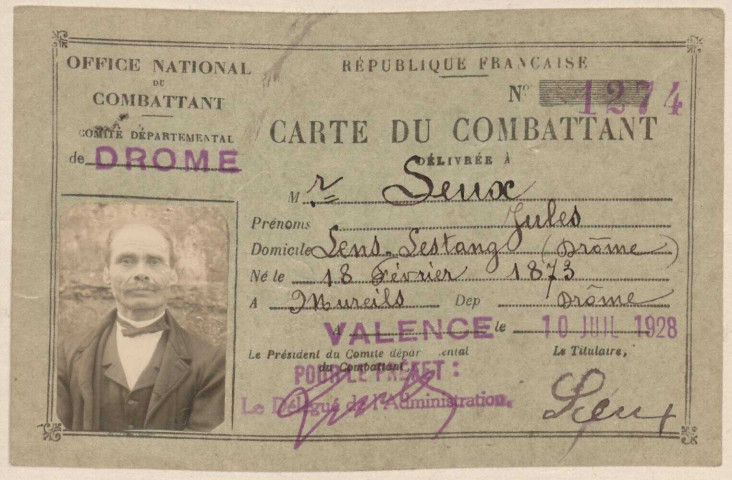 OFFICE NATIONAL
DU
COMBATTANT
COMITÉ DÉPARTEMENTAL
de DROME
RÉPUBLIQUE FRANÇAISE
N° 1274
CARTE DU COMBATTANT
DÉLIVRÉE À
Mr Seux
Prénoms Jules
Domicile Lens-Lestang (Drôme)
Né le 18 Février 1873
A Mureils Dep Drôme
A VALENCE le 10 JUIL 1928
Le Président du Comité dépar ental
du Combattant,
Le Titulaire,
POUR LE PRÉFET :
Le Délégué de l'Administration.
Seux